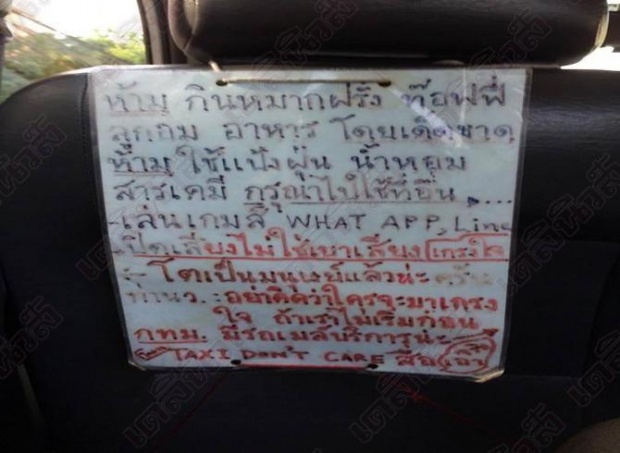 ห้าม กินหมากฝรั่ง ท๊อฟฟี่
ลูกอม อาหาร โดยเด็ดขาด
ห้าม ใช้แป้งฝุ่น น้ำหอม
สารเคมี กรุณาไปใช้ที่อื่น ....
-เล่นเกมส์ WHAT APP, Line
-ปิดเสียงไม่ใช่เบาเสียง เกรงใจ
โตเป็นมนุษย์แล้วน่ะ ครับ
:อย่าคิดว่าใครจะมาเกรง
ใจ ถ้าเราไม่เริ่มก่อน
กทม. มีรถเมล์บริการน่ะ
TAXI DON'T CARE
เดลินิวส์